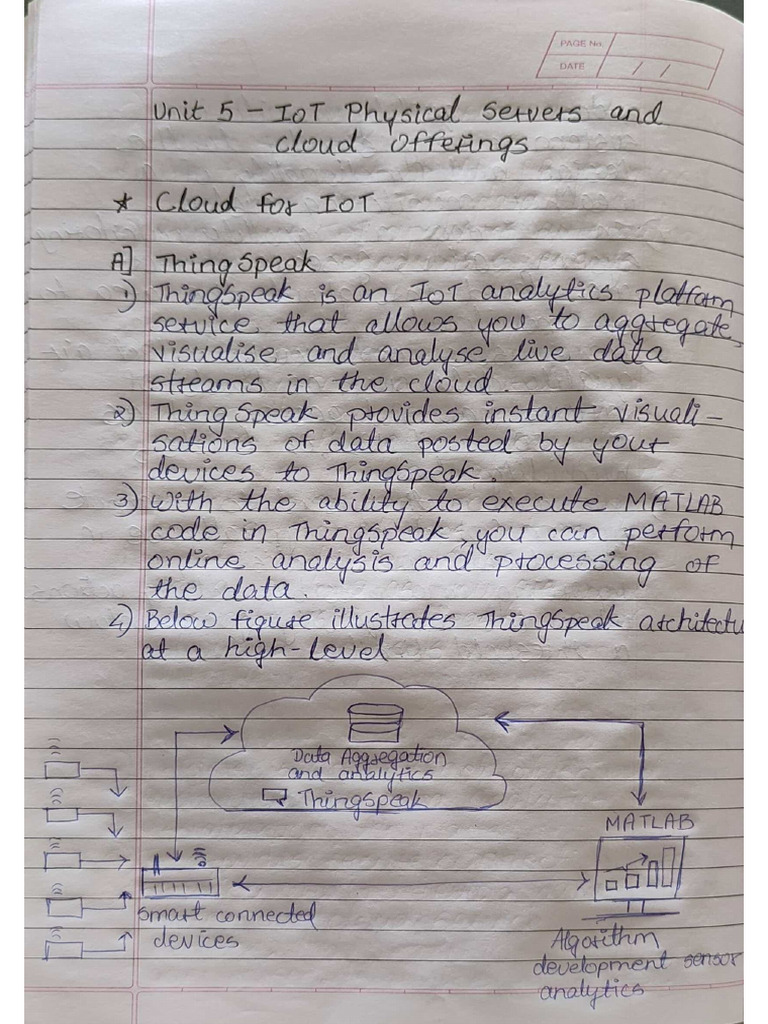 PAGE No.
DATE / /
Unit 5 - IoT Physical Servers and
Cloud Offerings
* Cloud for IoT
A] ThingSpeak
1) ThingSpeak is an IoT analytics platform
service that allows you to aggregate,
visualise and analyse live data
streams in the cloud.
2) ThingSpeak provides instant visuali-
sations of data posted by your
devices to ThingSpeak.
3) With the ability to execute MATLAB
code in ThingSpeak, you can perform
online analysis and processing of
the data.
4) Below figure illustrates ThingSpeak architectu
at a high-level
Data Aggregation
and analytics
ThingSpeak
MATLAB
Smart connected
devices
Algorithm
development sensor
analytics